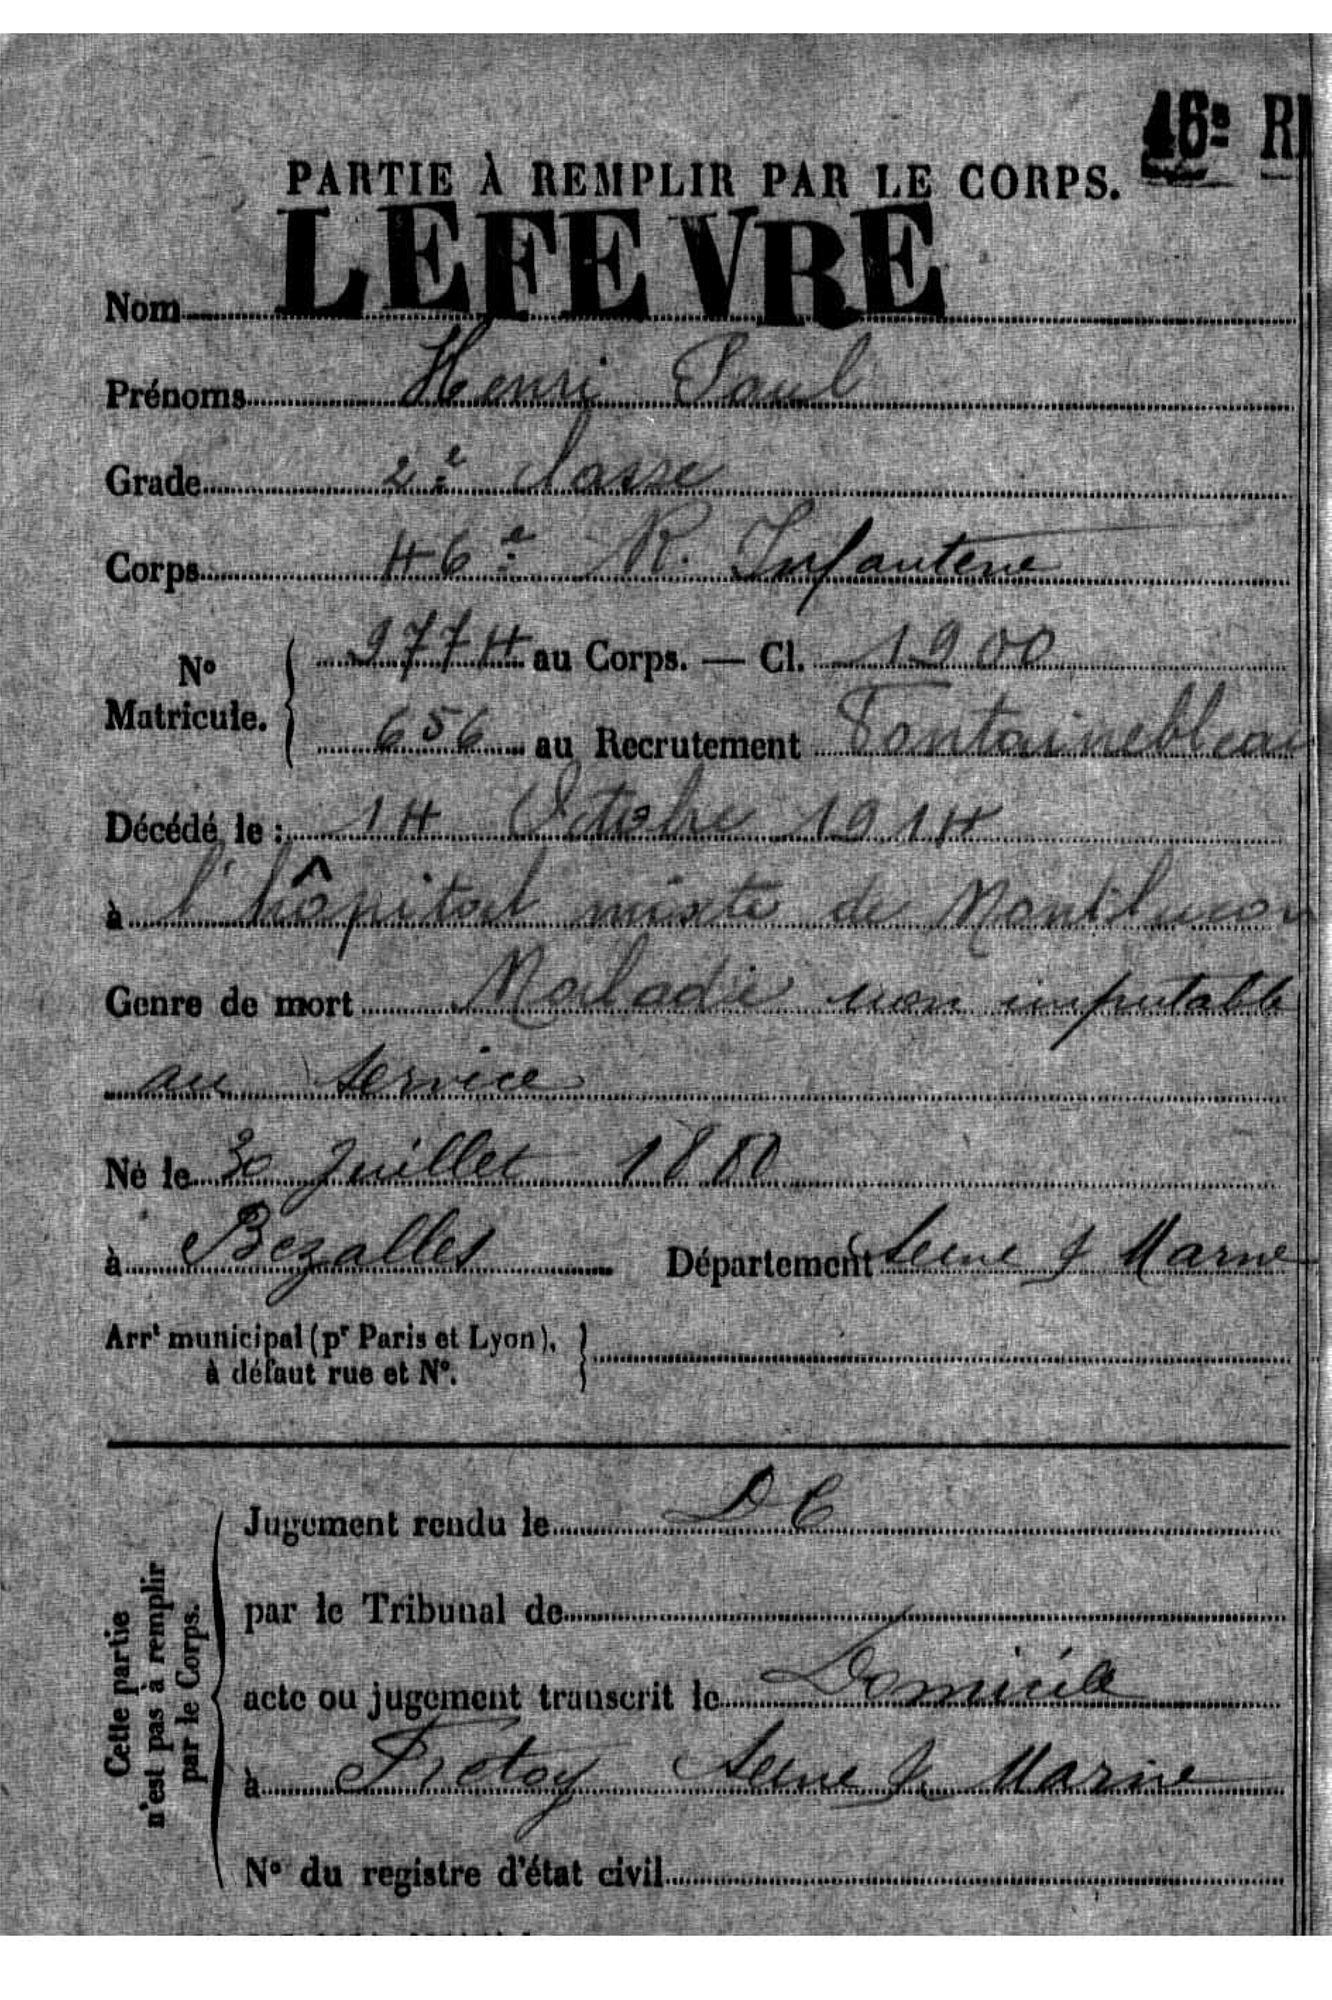 46e RI
PARTIE À REMPLIR PAR LE CORPS.
Nom LEFEVRE
Prénoms Henri Paul
Grade 2e classe
Corps 46e R. Infanterie
No Matricule. { 9774 au Corps. — Cl. 1900
656 au Recrutement Fontainebleau
Décédé le : 14 Octobre 1914
à l'hôpital mixte de Montluçon
Genre de mort Maladie non imputable
au service
Né le 30 Juillet 1880
à Bezalles Département Seine & Marne
Arrt municipal (pr Paris et Lyon),
à défaut rue et No.
Cette partie
n'est pas à remplir
par le Corps.
Jugement rendu le DC
par le Tribunal de
acte ou jugement transcrit le Domicile
à Fretoy Seine & Marne
No du registre d'état civil